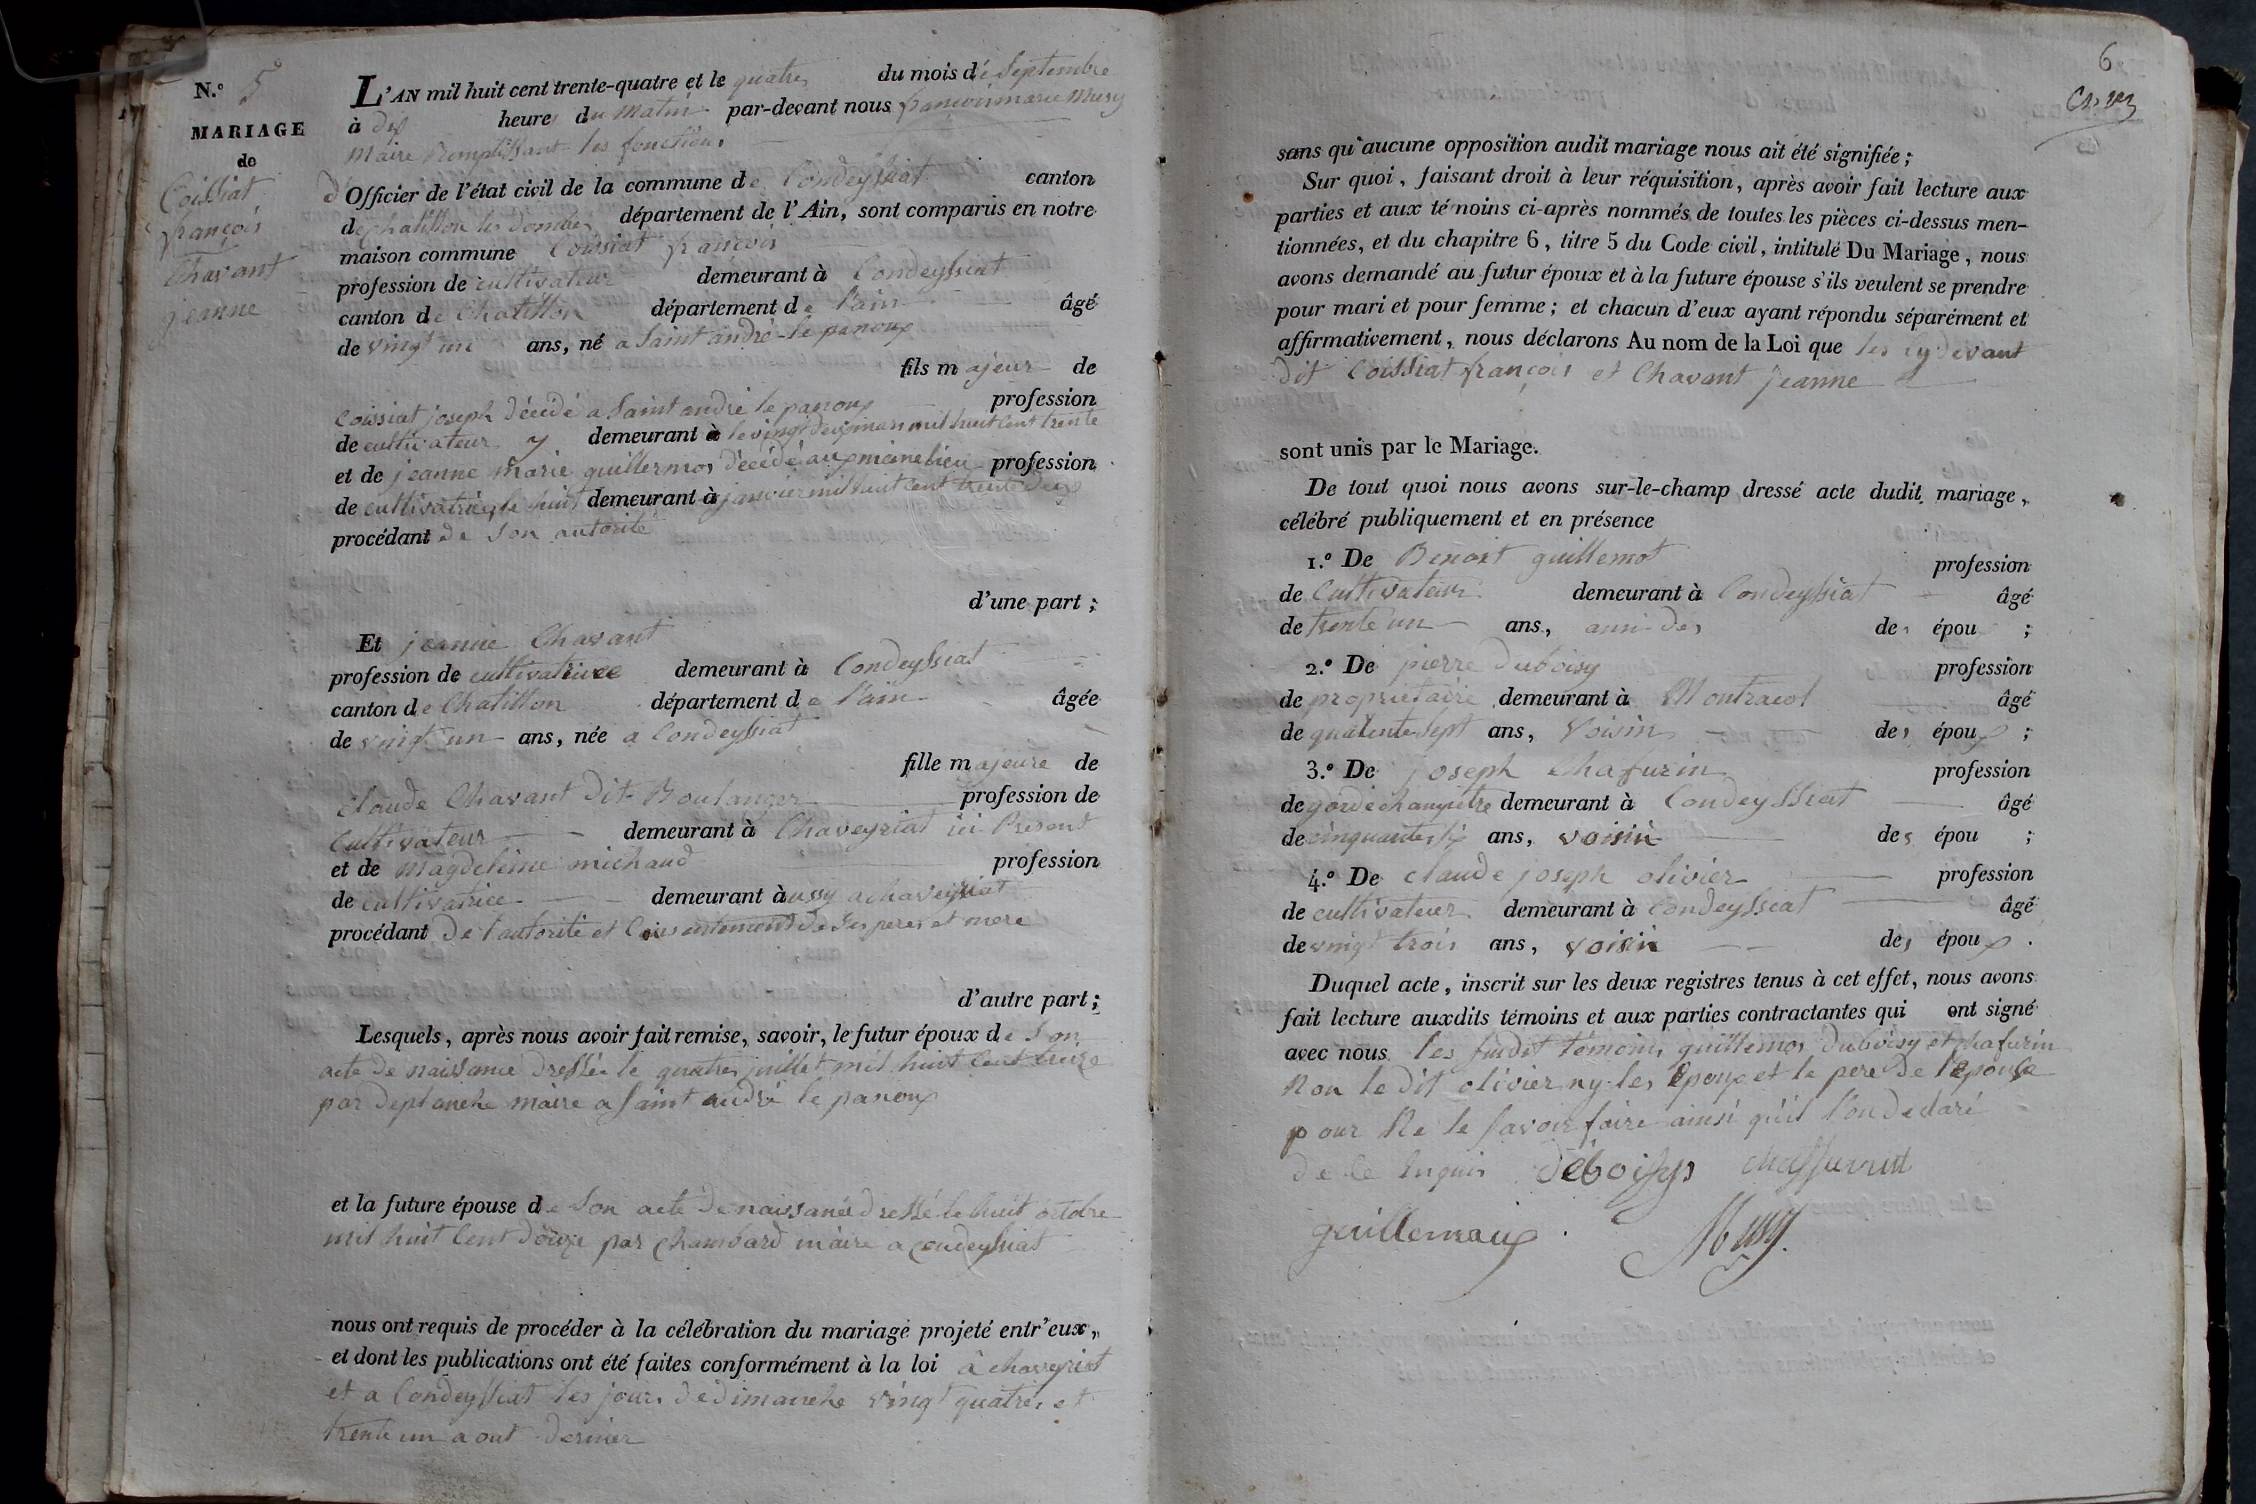 N.° 5
MARIAGE
de
Coissiat
françois
Chavant
jeanne
L'AN mil huit cent trente-quatre et le quatre du mois de Septembre
à dix heures du Matin par-devant nous françois marie Musy
Maire Remplissant les fonctions
d'Officier de l'état civil de la commune de Condeyssiat canton
de chatillon les dombes département de l'Ain, sont comparus en notre
maison commune Coissiat françois
profession de cultivateur demeurant à Condeyssiat
canton de Chatillon département de l'ain âgé
de vingt un ans, né a Saint andré le panoux
fils majeur de
Coissiat joseph décédé a Saint andré le panoux profession
de cultivateur y demeurant à le vingt deux mars mil huit Cent trente
et de jeanne marie guillermos décédé aux meme lieu profession
de cultivatrice le huit demeurant à janvier mil huit cent trente deux
procédant de Son autorité
d'une part ;
Et jeanne Chavant
profession de cultivatrice demeurant à Condeyssiat
canton de Chatillon département de l'ain âgée
de vingt un ans, née a Condeyssiat
fille majeure de
Claude Chavant Dit Boulanger profession de
Cultivateur demeurant à Chaveyriat ici Présent
et de Magdeleine michaud profession
de cultivatrice demeurant à aussy a chaveyriat
procédant De l'autorité et Consentement de Ses peres et mere
d'autre part ;
Lesquels, après nous avoir fait remise, savoir, le futur époux de Son
acte de naissance dressée le quatre juillet mil huit cent treize
par deplanche maire a Saint andré le panoux
et la future épouse de Son acte de naissance dressé le huit octobre
mil huit Cent douze par Chambard maire a condeyssiat
nous ont requis de procéder à la célébration du mariage projeté entr'eux,
et dont les publications ont été faites conformément à la loi à chaveyriat
et a Condeyssiat les jours de dimanche vingt quatre et
trente un aout dernier
6
sans qu'aucune opposition audit mariage nous ait été signifiée ;
Sur quoi, faisant droit à leur réquisition, après avoir fait lecture aux
parties et aux témoins ci-après nommés, de toutes les pièces ci-dessus men-
tionnées, et du chapitre 6, titre 5 du Code civil, intitulé Du Mariage, nous
avons demandé au futur époux et à la future épouse s'ils veulent se prendre
pour mari et pour femme ; et chacun d'eux ayant répondu séparément et
affirmativement, nous déclarons Au nom de la Loi que les cy devant
dit Coissiat françois et Chavant jeanne
sont unis par le Mariage.
De tout quoi nous avons sur-le-champ dressé acte dudit mariage,
célébré publiquement et en présence
1.° De Benoit guillemot profession
de Cultivateur demeurant à Condeyssiat âgé
de trente un ans, ami des des épou ;
2.° De pierre duboisy profession
de propriétaire demeurant à Montracol âgé
de quatente sept ans, Voisin des époux ;
3.° De joseph Chafurin profession
de gardechampetre demeurant à Condeyssiat âgé
de cinquante six ans, voisin des épou ;
4.° De claude joseph olivier profession
de cultivateur demeurant à Condeyssiat âgé
de vingt trois ans, voisin des époux .
Duquel acte, inscrit sur les deux registres tenus à cet effet, nous avons
fait lecture auxdits témoins et aux parties contractantes qui ont signé
avec nous les susdit témoins guillemos duboisy et chafurin
Non le dit olivier ny les Epoux et le pere de l'epouse
pour Ne le Savoir faire ainsi qu'il l'on declaré
de ce Enquis deboisys chassurrut
guillemaux Musy